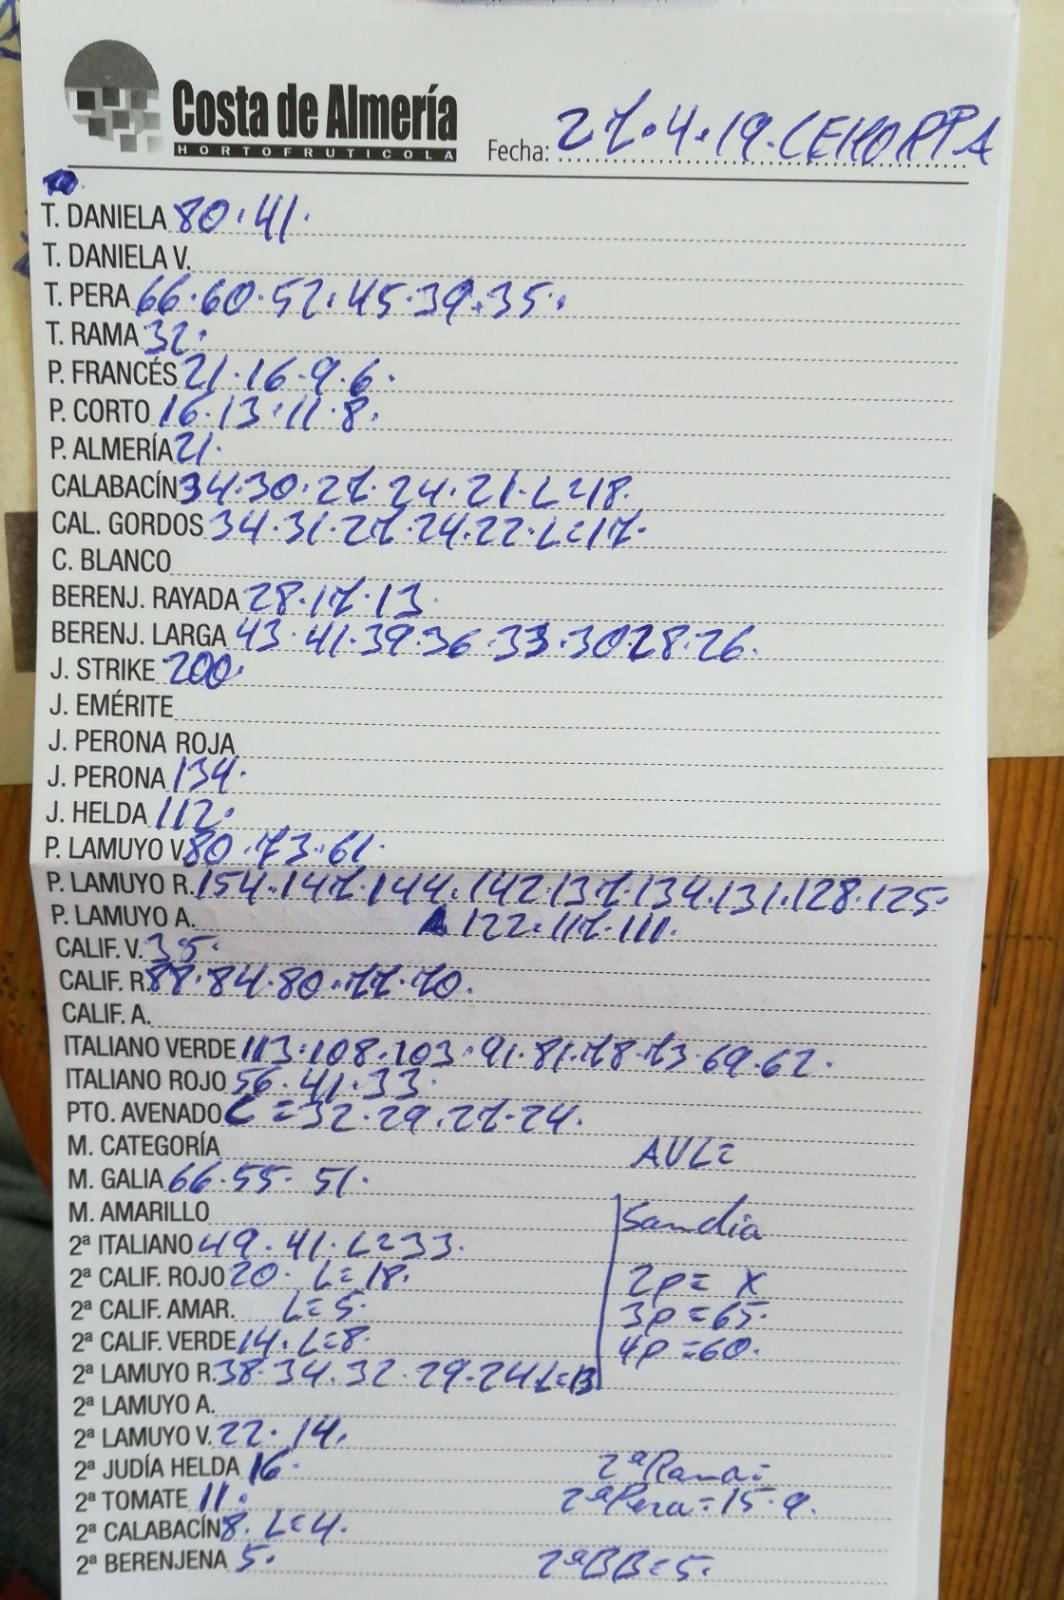 Costa de Almería
HORTOFRUTICOLA
Fecha: 27.4.19. CEHORPA
T. DANIELA 80.41.
T. DANIELA V.
T. PERA 66.60.52.45.39.35.
T. RAMA 32.
P. FRANCÉS 21.16.9.6.
P. CORTO 16.13.11.8.
P. ALMERÍA 21.
CALABACÍN 34.30.27.24.21.L=18.
CAL. GORDOS 34.31.27.24.22.L=17.
C. BLANCO
BERENJ. RAYADA 28.17.13.
BERENJ. LARGA 43.41.39.36.33.30.28.26.
J. STRIKE 200.
J. EMÉRITE
J. PERONA ROJA
J. PERONA 134.
J. HELDA 112.
P. LAMUYO V. 80.73.61.
P. LAMUYO R. 154.147.144.142.137.134.131.128.125.
P. LAMUYO A. 122.117.111.
CALIF. V. 35.
CALIF. R. 88.84.80.77.70.
CALIF. A.
ITALIANO VERDE 113.108.103.91.81.78.73.69.62.
ITALIANO ROJO 56.41.33.
PTO. AVENADO C=32.29.27.24.
M. CATEGORÍA AVL=
M. GALIA 66.55.51.
M. AMARILLO Sandia
2ª ITALIANO 49.41.L=33.
2ª CALIF. ROJO 20. L=18. 2p= X
2ª CALIF. AMAR. L=5. 3p=65.
2ª CALIF. VERDE 14.L=8. 4p=60.
2ª LAMUYO R. 38.34.32.29.24 L=13
2ª LAMUYO A.
2ª LAMUYO V. 22.14.
2ª JUDÍA HELDA 16. 2ª Rama=
2ª TOMATE 11. 2ª Pera=15.9.
2ª CALABACÍN 8. L=4.
2ª BERENJENA 5. 2ª BB=5.